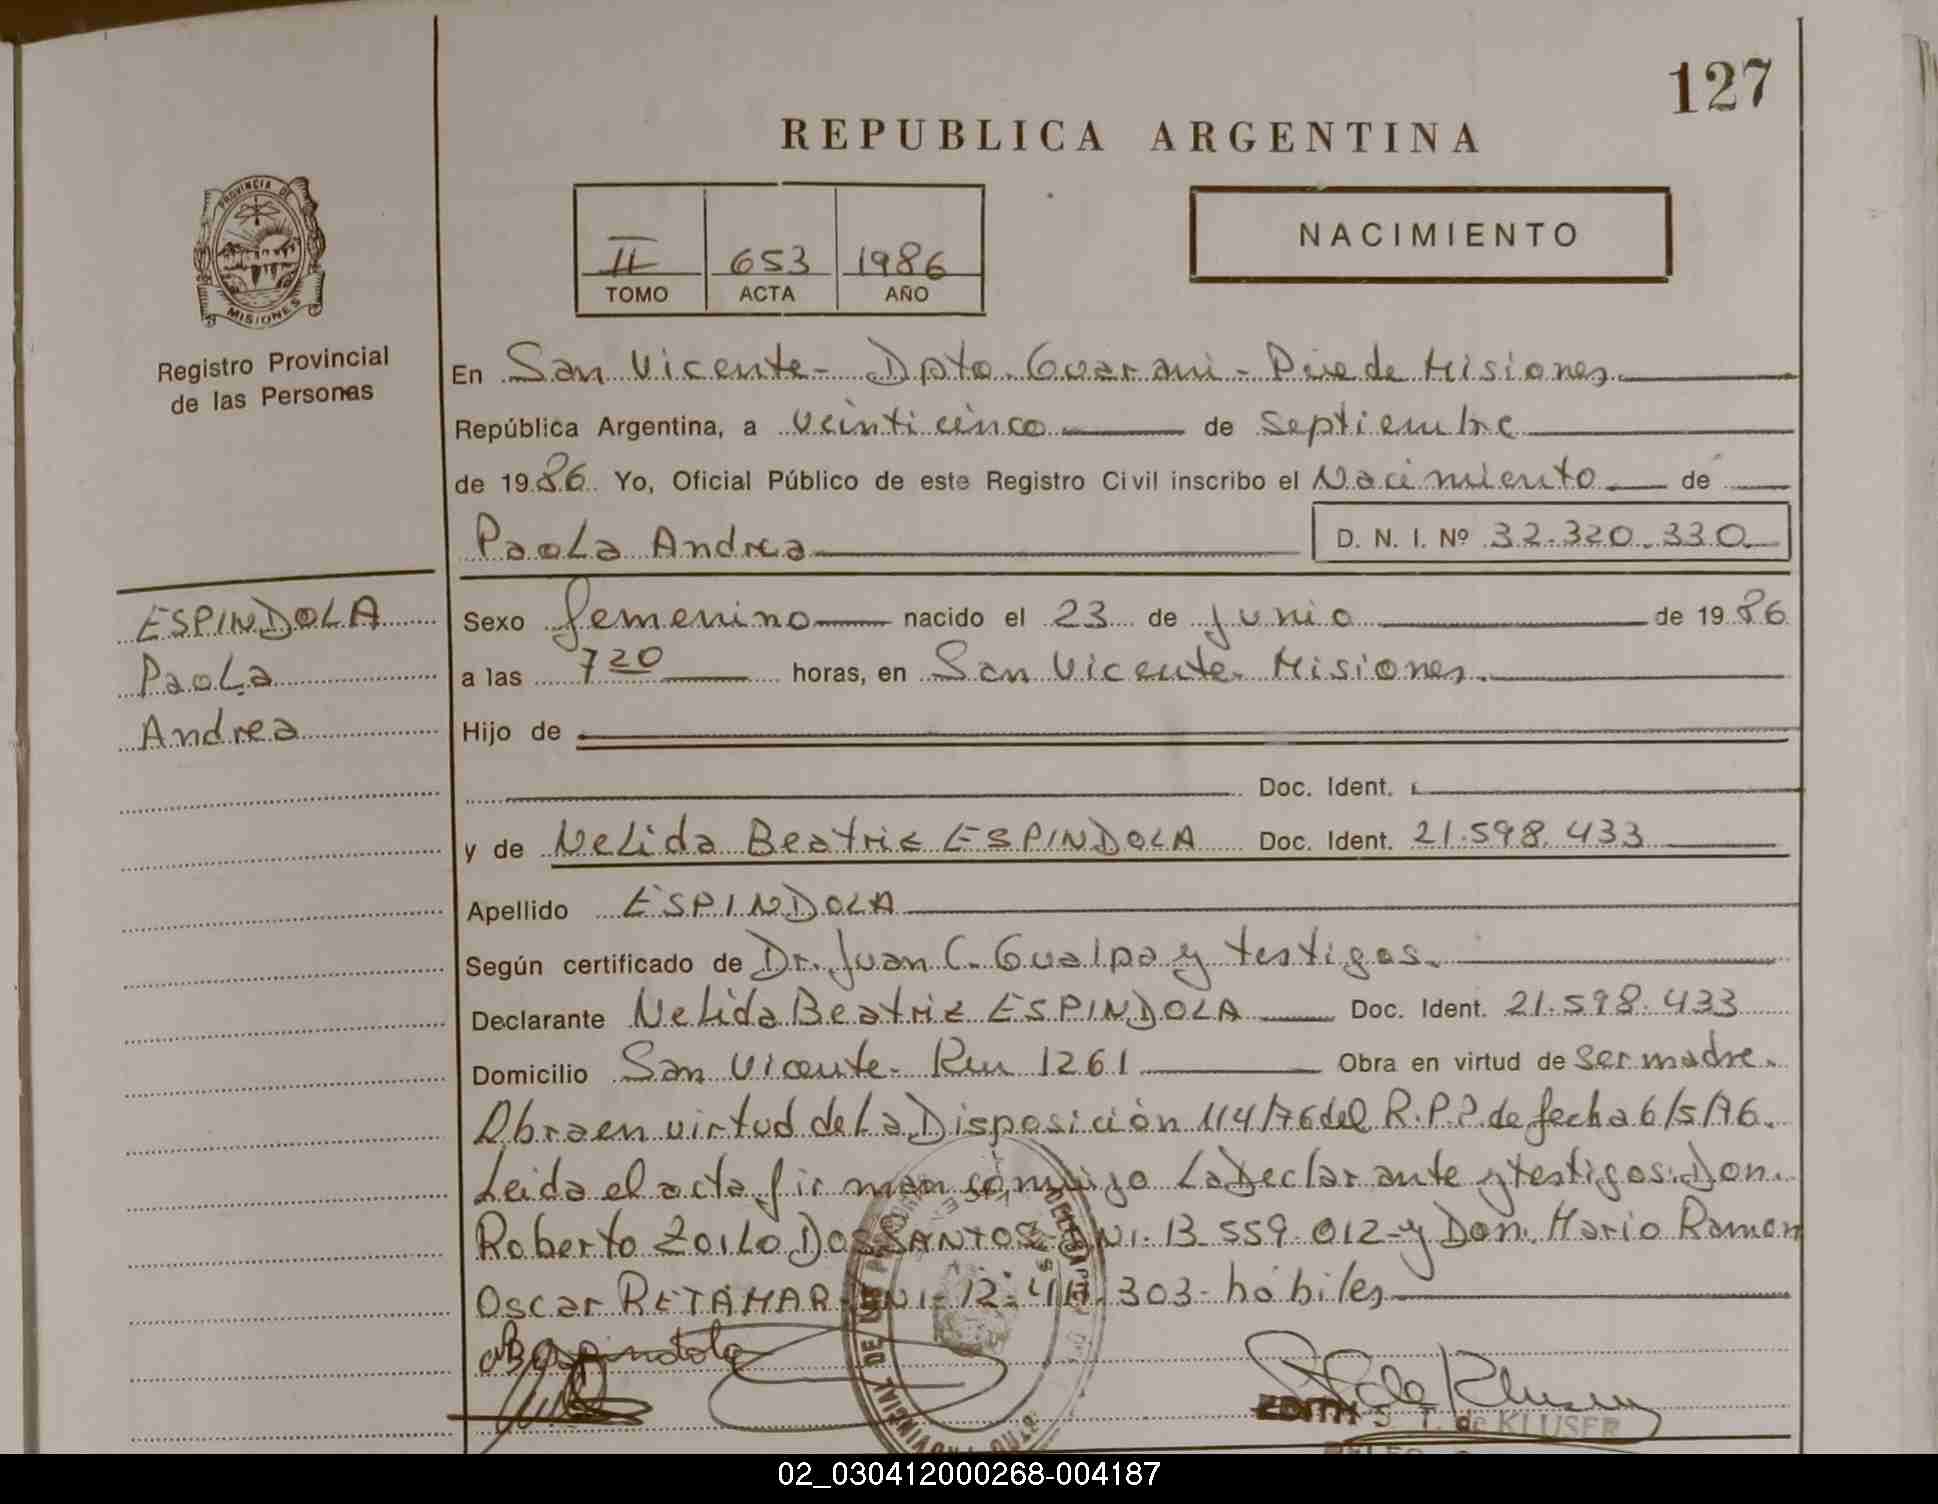 127
REPUBLICA ARGENTINA
PROVINCIA DE
MISIONES
Registro Provincial
de las Personas
II 653 1986
TOMO ACTA AÑO
NACIMIENTO
En San Vicente - Dpto. Guarani - Pcia de Misiones.
República Argentina, a veinticinco de septiembre
de 1986 Yo, Oficial Público de este Registro Civil inscribo el Nacimiento de
Paola Andrea D. N. I. Nº 32.320.330
ESPINDOLA
Paola
Andrea
Sexo femenino nacido el 23 de junio de 1986
a las 7 20 horas, en San Vicente. Misiones.
Hijo de
Doc. Ident.
y de Nelida Beatriz ESPINDOLA Doc. Ident. 21.598.433
Apellido ESPINDOLA
Según certificado de Dr. Juan C. Gualpa y testigos.
Declarante Nelida Beatriz ESPINDOLA Doc. Ident. 21.598.433
Domicilio San Vicente - Km 1261 Obra en virtud de ser madre.
Obra en virtud de la Disposición 114/76 del R.P.P. de fecha 6/5/76.
Leida el acta, firman conmigo la Declarante y testigos: Don.
Roberto Zoilo DOS SANTOS-DNI-13.559.012-y Don. Mario Ramon
Oscar RETAMAR-DNI-12.411.303- hábiles
EDITH S T. de KLUSER
02_030412000268-004187